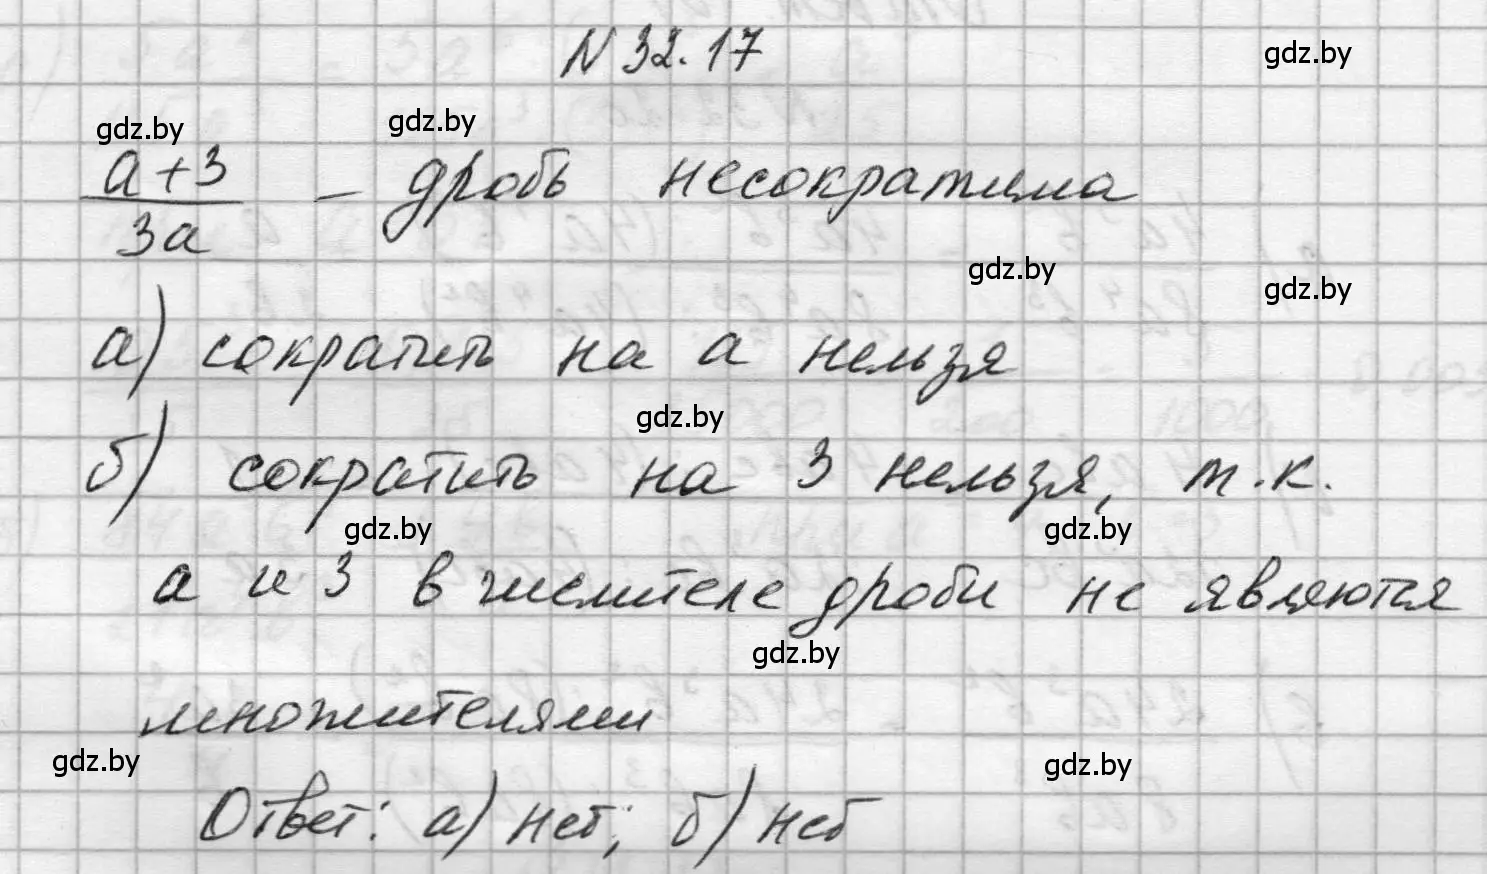 N 32.17
gdz.by
gdz.by
gdz.by
a+3
3a
– дробь несократима
gdz.by
gdz.by
а) сократить на a нельзя
gdz.by
б) сократить на 3 нельзя, т.к.
gdz.by
gdz.by
a и 3 в числителе дроби не являются
gdz.by
множителями
gdz.by
gdz.by
Ответ: а) нет; б) нет